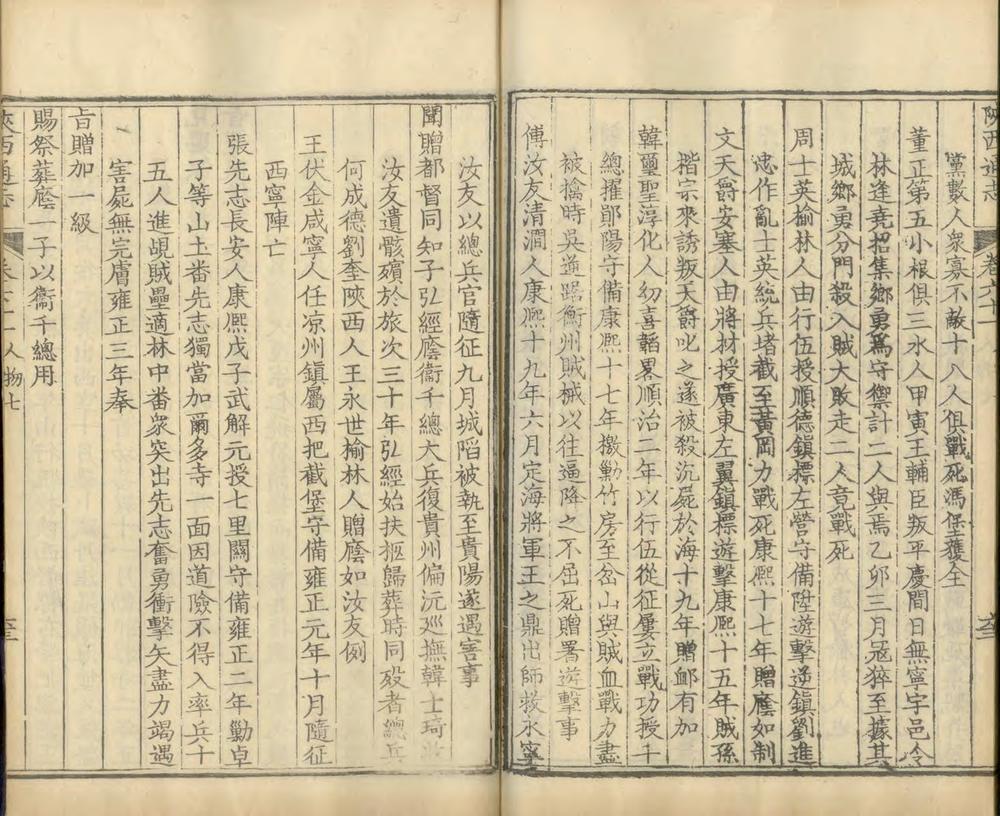 陝西通志 卷六十一
黨數人衆寡不敵十八人俱戰死馮堡獲全
董正第五小根俱三水人甲寅王輔臣叛平慶間日無寧宇邑令
林逢堯招集鄉勇爲守禦計二人與焉乙卯三月冦猝至據其
城鄉勇分門殺入賊大敗走二人竟戰死
周士英榆林人由行伍授順德鎮標左營守備陞遊擊逆鎮劉進
忠作亂士英統兵堵截至黃岡力戰死康熙十七年贈廕如制
文天爵安塞人由將材授廣東左翼鎮標遊擊康熙十五年賊孫
楷宗來誘叛天爵叱之遂被殺沉屍於海十九年贈䘏有加
韓璽聖淳化人幼喜韜畧順治二年以行伍從征屢立戰功授千
總擢鄖陽守備康熙十七年檄勦竹房至岔山與賊血戰力盡
被擒時吳逆踞衡州賊械以往逼降之不屈死贈署遊擊事
傅汝友清澗人康熙十九年六月定海將軍王之鼎出師救永寧
汝友以總兵官隨征九月城陷被執至貴陽遂遇害事
聞贈都督同知子弘經廕衞千總大兵復貴州偏沅廵撫韓士琦
汝友遺骸殯於旅次三十年弘經始扶柩歸葬時同殁者總兵
何成德劉奎陝西人王永世榆林人贈廕如汝友例
王伏金咸寧人任凉州鎮屬西把截堡守備雍正元年十月隨征
西寧陣亡
張先志長安人康熙戊子武解元授七里關守備雍正二年勦卓
子等山土番先志獨當加爾多寺一面因道險不得入率兵十
五人進覘賊壘適林中番衆突出先志奮勇衝擊矢盡力竭遇
害屍無完膚雍正三年奉
㫖贈加一級
賜祭葬廕一子以衞千總用
陝西通志 人物七